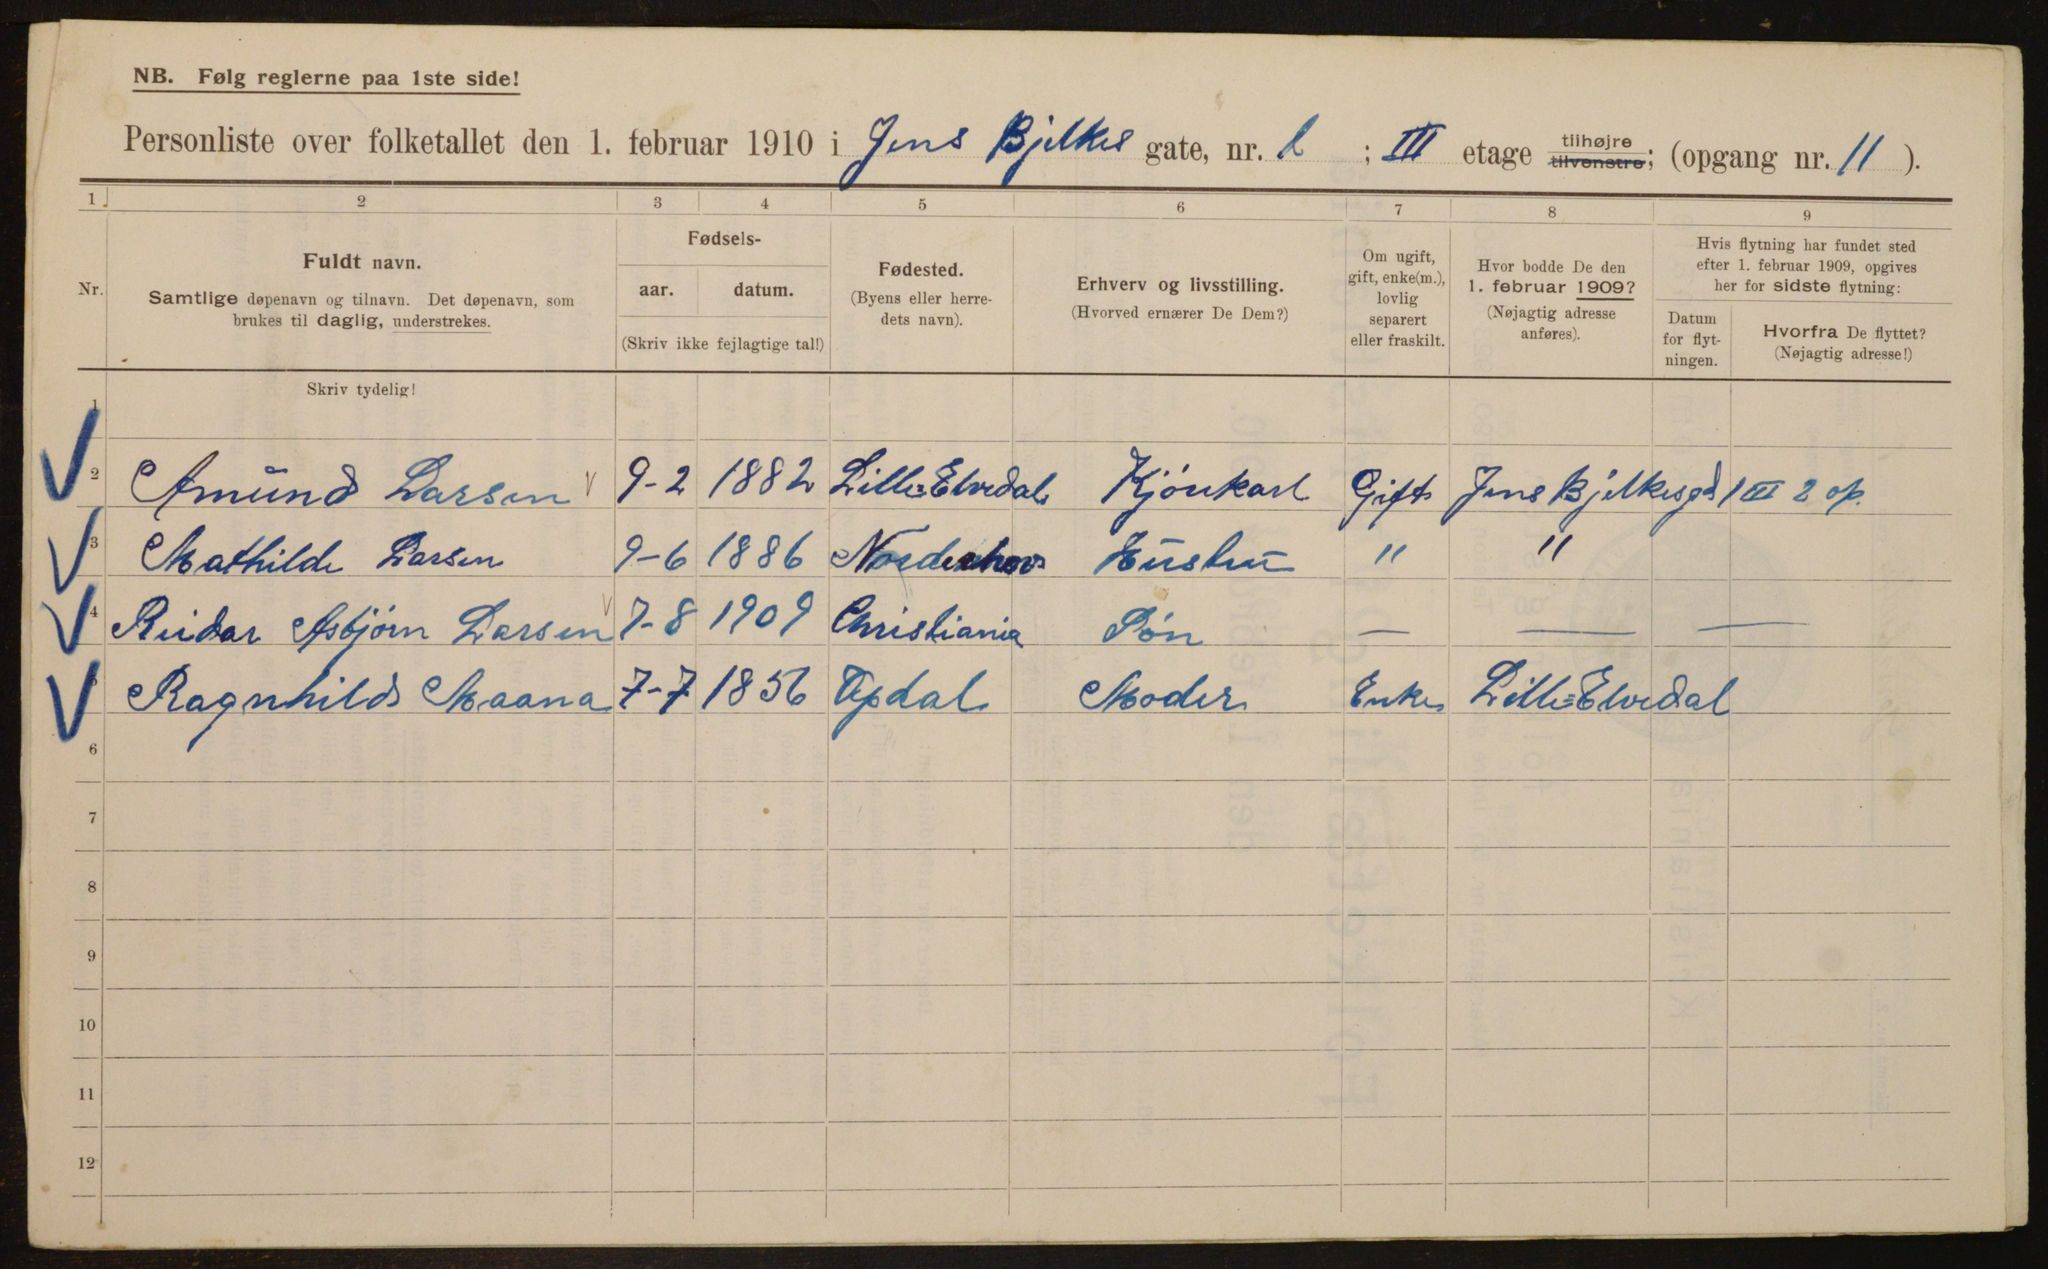 NB. Følg reglerne paa 1ste side!
Personliste over folketallet den 1. februar 1910 i Jens Bjelkes gate, nr. ; III etage tilhøjre tilvenstre; (opgang nr. 11 ).
1 2 3 4 5 6 7 8 9
Nr.
Fuldt navn.
Samtlige døpenavn og tilnavn. Det døpenavn, som
brukes til daglig, understrekes.
Fødsels-
aar. datum.
(Skriv ikke fejlagtige tal!)
Fødested.
(Byens eller herre-
dets navn).
Erhverv og livsstilling.
(Hvorved ernærer De Dem?)
Om ugift,
gift, enke(m.),
lovlig
separert
eller fraskilt.
Hvor bodde De den
1. februar 1909?
(Nøjagtig adresse
anføres).
Hvis flytning har fundet sted
efter 1. februar 1909, opgives
her for sidste flytning:
Datum
for flyt-
ningen.
Hvorfra De flyttet?
(Nøjagtig adresse!)
Skriv tydelig!
1
2 Amund Larsen 9-2 1882 Lille=Elvedal Kjørekarl Gift Jens Bjelkesgd 1 III 2 op.
3 Mathilde Larsen 9-6 1886 Norderhov Hustru " "
4 Reidar Asbjørn Larsen 7-8 1909 Christiania Søn — — —
5 Ragnhild Maana 7-7 1856 Opdal Moder Enke Lille=Elvedal
6
7
8
9
10
11
12